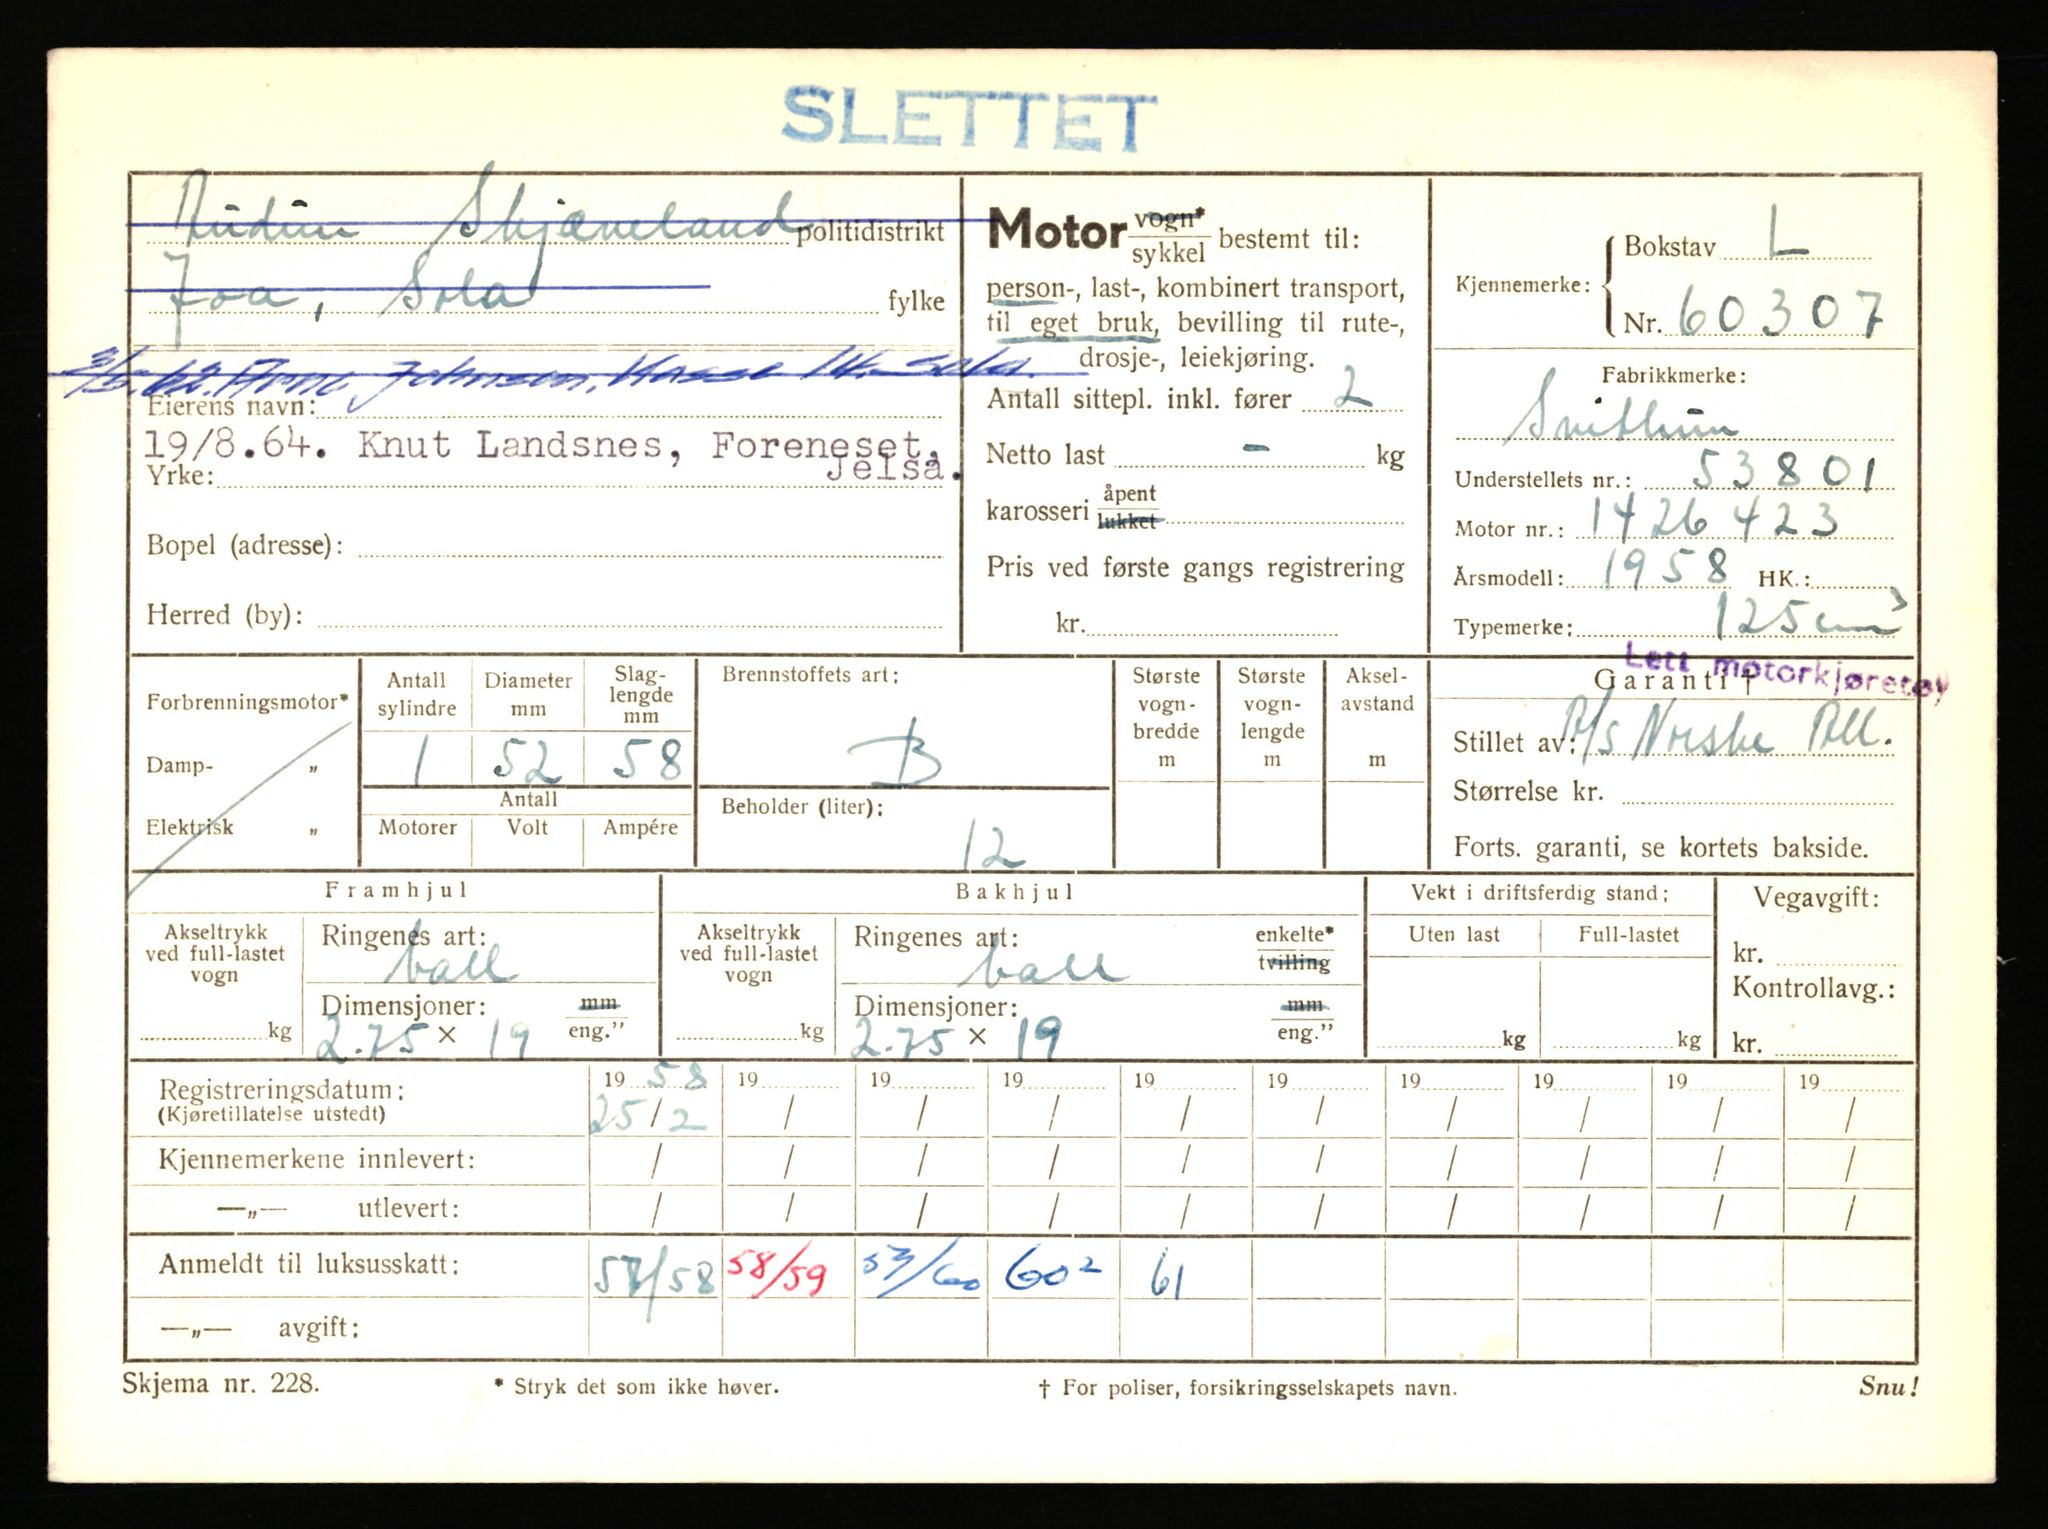 SLETTET
Audun Skjæveland politidistrikt
Joa, Sola fylke
3/5.62. Arne Johnson, Hasse 14. Sola.
Eierens navn:
19/8.64. Knut Landsnes, Foreneset,
Jelsa.
Yrke:
Bopel (adresse):
Herred (by):
Motor vogn* sykkel bestemt til:
person-, last-, kombinert transport,
til eget bruk, bevilling til rute-,
drosje-, leiekjøring.
Antall sittepl. inkl. fører 2
Netto last - kg
karosseri åpent lukket
Pris ved første gangs registrering
kr.
Kjennemerke: Bokstav L
Nr. 60307
Fabrikkmerke:
Svithun
Understellets nr.: 53801
Motor nr.: 1426423
Årsmodell: 1958 HK.:
Typemerke: 125 cm³
Lett motorkjøretøy
Forbrenningsmotor*
Damp- „
Elektrisk „
Antall sylindre
Diameter mm
Slag-lengde mm
1 52 58
Antall
Motorer Volt Ampére
Brennstoffets art:
B
Beholder (liter):
12
Største vogn-bredde m
Største vogn-lengde m
Aksel-avstand m
Garanti †
Stillet av: A/S Norske All.
Størrelse kr.
Forts. garanti, se kortets bakside.
Framhjul
Akseltrykk ved full-lastet vogn
kg
Ringenes art:
ball
Dimensjoner: mm
2.75 × 19 eng.”
Bakhjul
Akseltrykk ved full-lastet vogn
kg
Ringenes art: enkelte*
ball tvilling
Dimensjoner: mm
2.75 × 19 eng.”
Vekt i driftsferdig stand:
Uten last Full-lastet
kg kg
Vegavgift:
kr.
Kontrollavg.:
kr.
Registreringsdatum: 19 58 19 19 19 19 19 19 19 19 19
(Kjøretillatelse utstedt) 25/2 / / / / / / / / /
Kjennemerkene innlevert: / / / / / / / / / /
—„— utlevert: / / / / / / / / / /
Anmeldt til luksusskatt: 57/58 58/59 53/60 60² 61
—„— avgift:
Skjema nr. 228. * Stryk det som ikke høver. † For poliser, forsikringsselskapets navn. Snu!